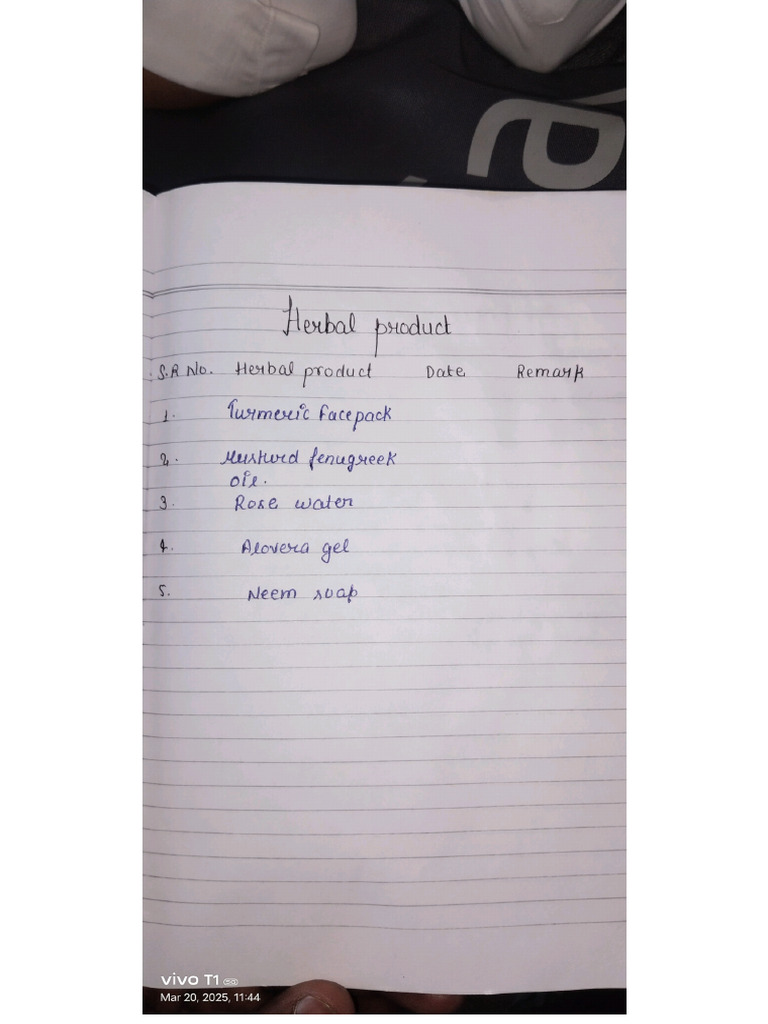 Herbal product
S.R No. Herbal product Date Remark
1. Turmeric facepack
2. Musturd fenugreek
oil.
3. Rose water
4. Alovera gel
5. Neem soap
vivo T1 5G
Mar 20, 2025, 11:44